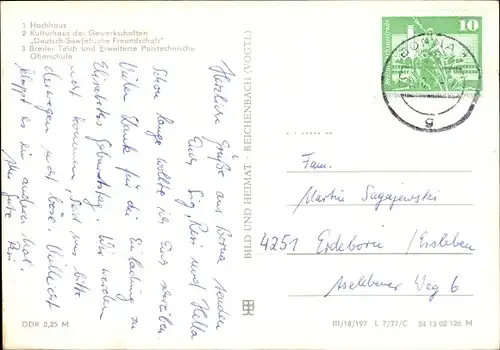 1 Hochhaus
2 Kulturhaus der Gewerkschaften
„Deutsch-Sowjetische Freundschaft"
3 Breiter Teich und Erweiterte Polytechnische
Oberschule
Herzliche Grüße aus Borna senden
Euch Sig, Resi und Hella
Schon lange wollte ich Euch schreiben.
Vielen Dank für die Einladung zu
Elisabethes Geburtstag. Wir werden
nicht kommen, seid uns bitte
deswegen nicht böse. Vielleicht
klappt es ein anderes Mal.
Alles Gute Resi
BILD UND HEIMAT · REICHENBACH (VOGTL)
10
BORNA
g
Fam.
Martin Sagajewski
4251 Erdeborn / Eisleben
Aselebener Weg 6
DDR 0,25 M
III/18/197 L 7/77/C 04 13 02 126 M